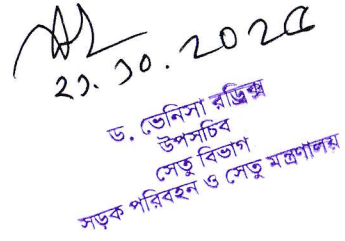 ২১.১০.২০২৫
ড. ভেনিসা রড্রিক্স
উপসচিব
সেতু বিভাগ
সড়ক পরিবহন ও সেতু মন্ত্রণালয়